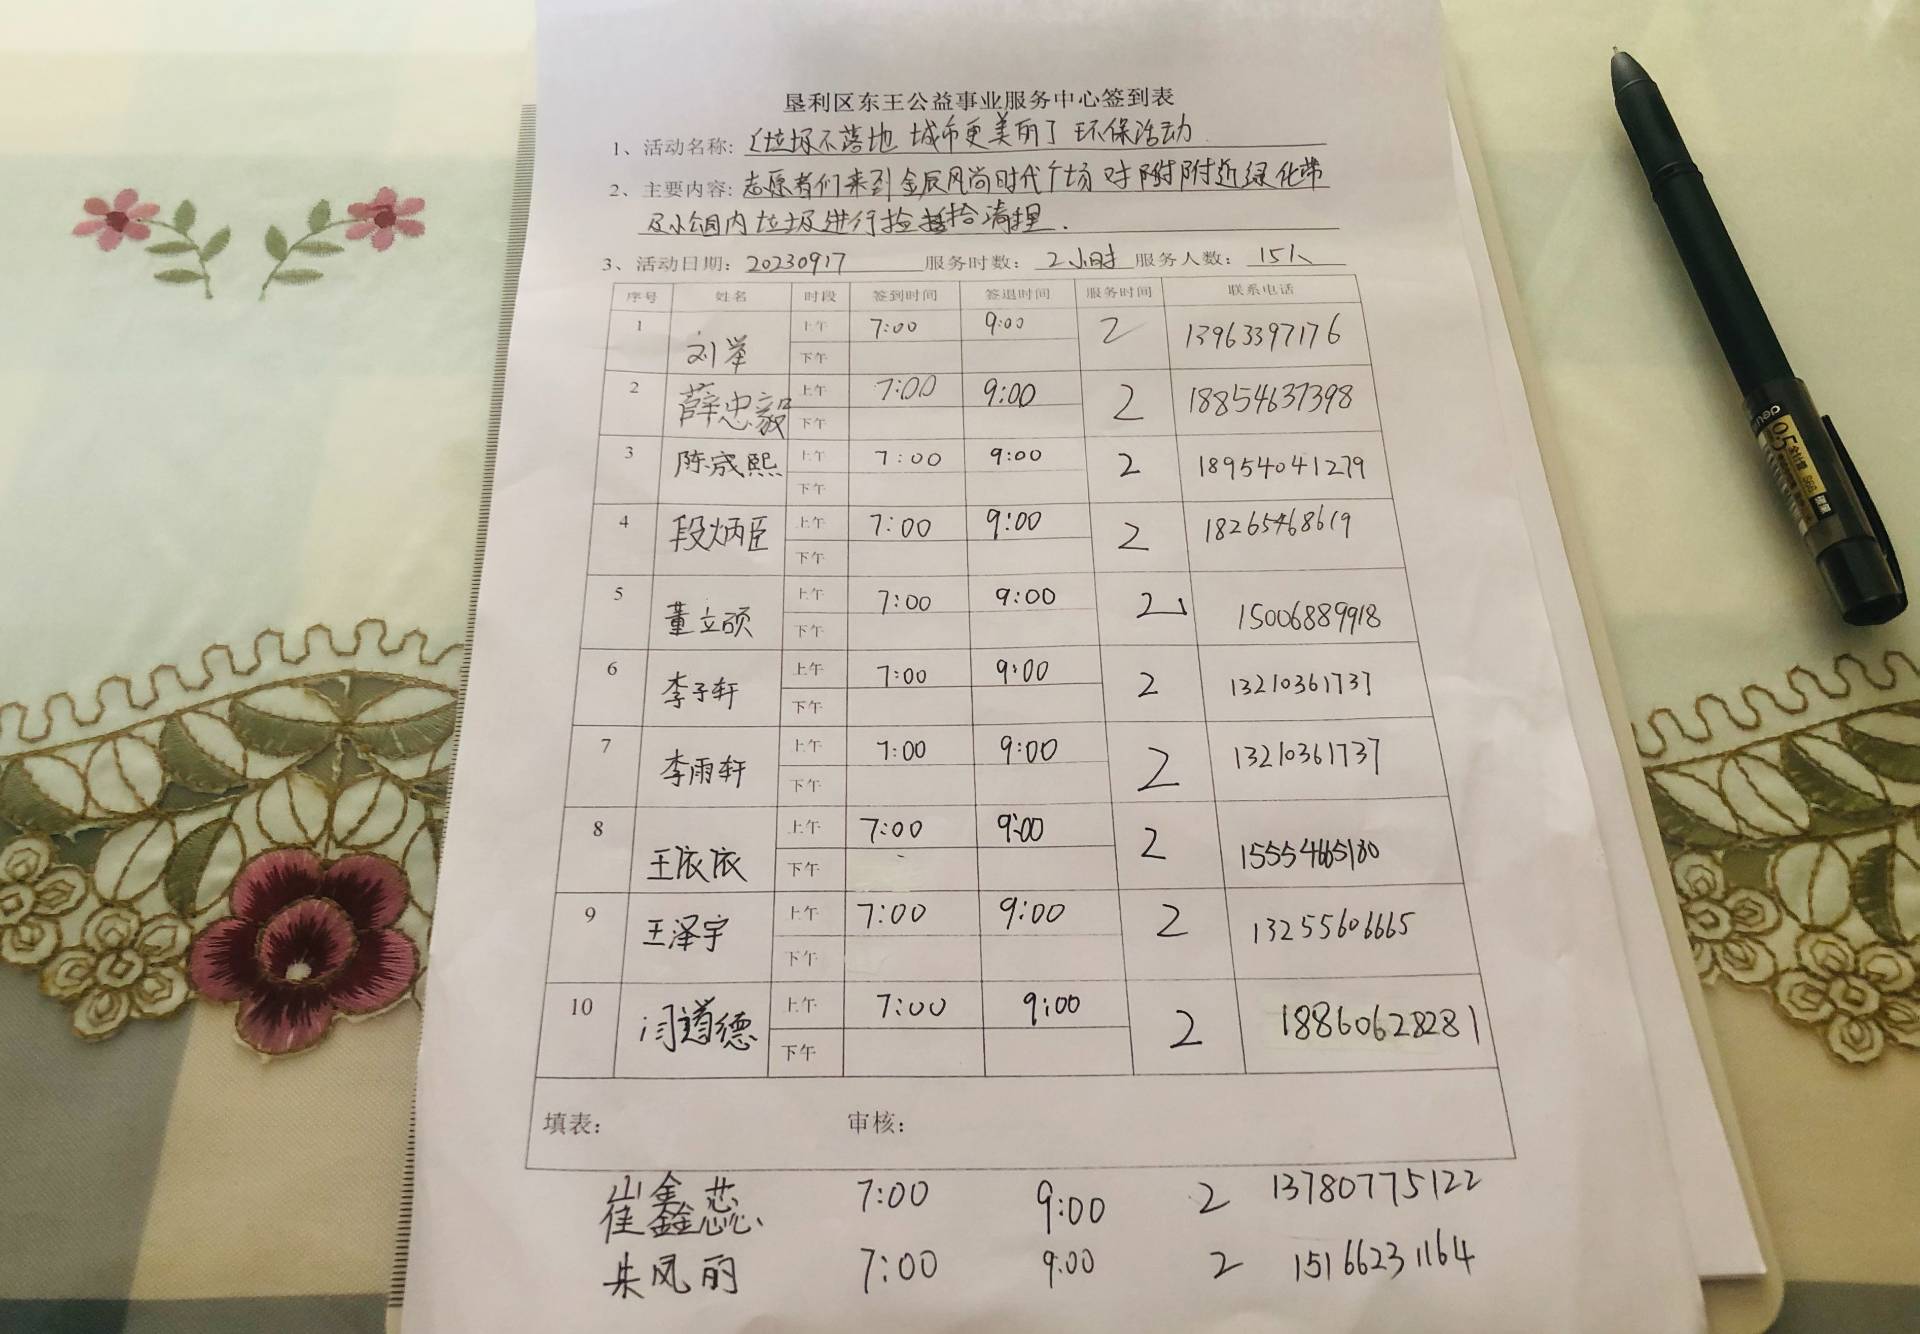 垦利区东王公益事业服务中心签到表
1、活动名称: 《垃圾不落地 城市更美丽》环保活动
2、主要内容: 志愿者们来到金辰风尚时代广场对附附近绿化带
及小公园内垃圾进行捡拾清理.
3、活动日期: 20230917 服务时数: 2小时 服务人数: 15人
序号 姓名 时段 签到时间 签退时间 服务时间 联系电话
1 刘举 上午 7:00 9:00 2 13963397176
下午
2 薛忠毅 上午 7:00 9:00 2 18854637398
下午
3 陈宬熙 上午 7:00 9:00 2 18954041279
下午
4 段炳臣 上午 7:00 9:00 2 18265468619
下午
5 董立硕 上午 7:00 9:00 2 15006889918
下午
6 李子轩 上午 7:00 9:00 2 13210361737
下午
7 李雨轩 上午 7:00 9:00 2 13210361737
下午
8 王依依 上午 7:00 9:00 2 15554665180
下午
9 王泽宇 上午 7:00 9:00 2 13255606665
下午
10 闫道德 上午 7:00 9:00 2 18860628281
下午
填表: 审核:
崔鑫蕊 7:00 9:00 2 13780775122
朱凤丽 7:00 9:00 2 15166231164
deli 0.5 全针管